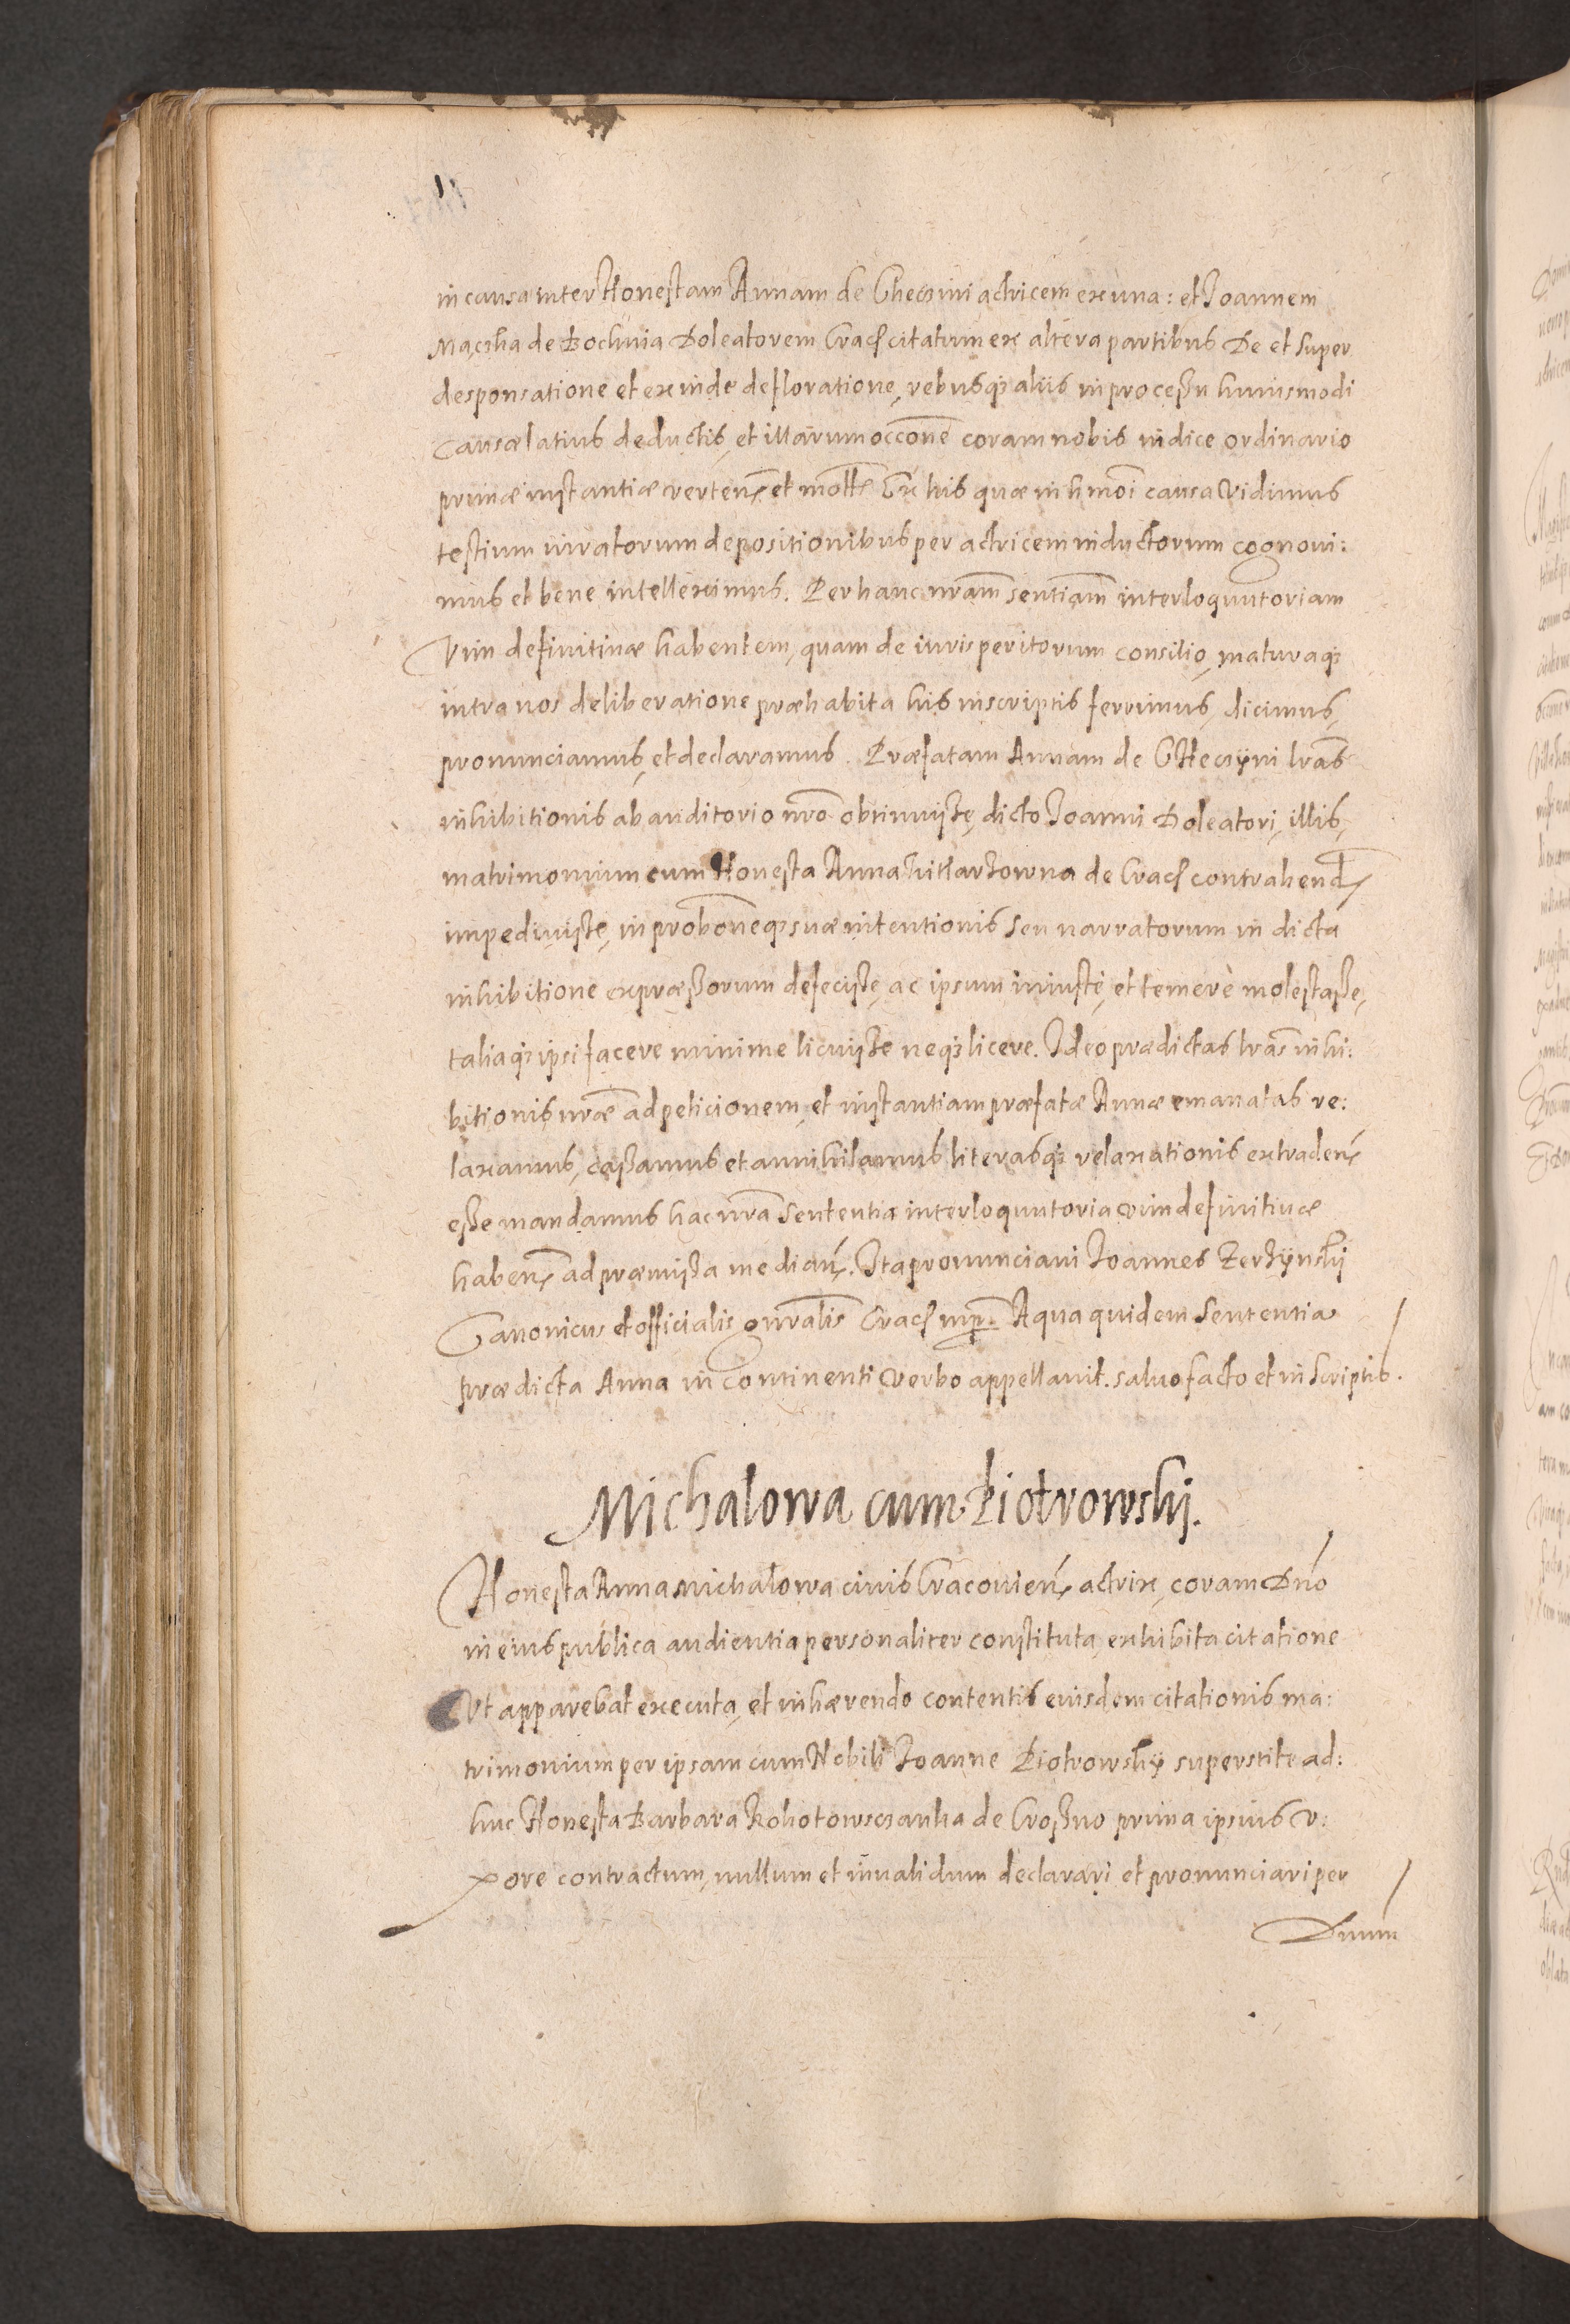 in causa inter Honestam Annam de Checzini actricem ex una: et Joannem
Maczka de Bochnia Doleatorem Crac citatum ex altera partibus De et super
desponsatione et exinde defloratione, rebusq aliis in processu huiusmodi
causæ latius deductis, et illarum occone coram nobis iudice ordinario
primæ instantiæ verten et Ex his quæ in hmoi causa vidimus
testium iuratorum depositionibus per actricem inductorum cognoui:
mus et bene intelleximus. Per hanc nram sentiam interloquutoriam
Vim definitiuæ habentem, quam de iurisperitorum consilio, maturaq
intra nos deliberatione præhabita his inscriptis ferrimus, dicimus,
pronunciamus, et declaramus. Præfatam Annam de Checzyni lras
inhibitionis ab auditorio nro obtinuisse, dicto Joanni Doleatori, illis,
matrimonium cum Honesta Anna de Crac contrahend
impediuisse, in proboneq suæ intentionis seu narratorum in dicta
inhibitione expræssorum defecisse, ac ipsum iniustè, et temerè molestasse,
taliaq ipsi facere minime licuisse neq licere. Ideo prædictas lras inhi:
bitionis nræ ad peticionem, et instantiam præfatæ Annæ emanatas re:
laxamus, cassamus et annihilamus literasq relaxationis extraden
esse mandamus hac nra sententia interloquutoria vim definitiuæ
haben ad præmissa median. Ita pronunciaui Joannes Zerzynski
Canonicus et officialis gnralis Crac mp. A qua quidem sententia
prædicta Anna in continenti verbo appellauit. saluo facto et in scriptis.
Michalowa cum Piotrowski.
Honesta Anna Michalowa ciuis Cracouien actrix, coram Dno
in eius publica audientia personaliter constituta, exhibita citatione
Vt apparebat executa, et inhærendo contentis eiusdem citationis ma:
trimonium per ipsam cum Nobili Joanne Piotrowsky superstite ad:
huc Honesta Barbara de Crossno prima ipsius v:
xore contractum, nullum et inualidum declarari et pronunciari per
Dnum